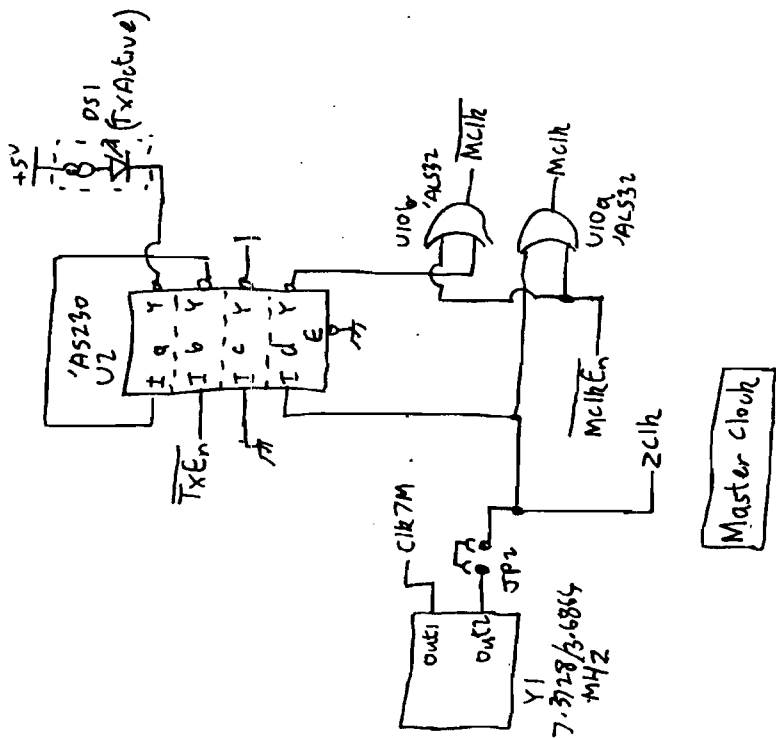 +5V
DS1
(TxActive)
'AS230
U2
I a Y
I b Y
I c Y
I d Y
E
TxEn
U10b
'ALS32
MClk
U10a
'ALS32
MClk
MClkEn
ZClk
Clk7M
JP2
Out1
Out2
Y1
7.3728/3.6864
MHZ
Master Clock